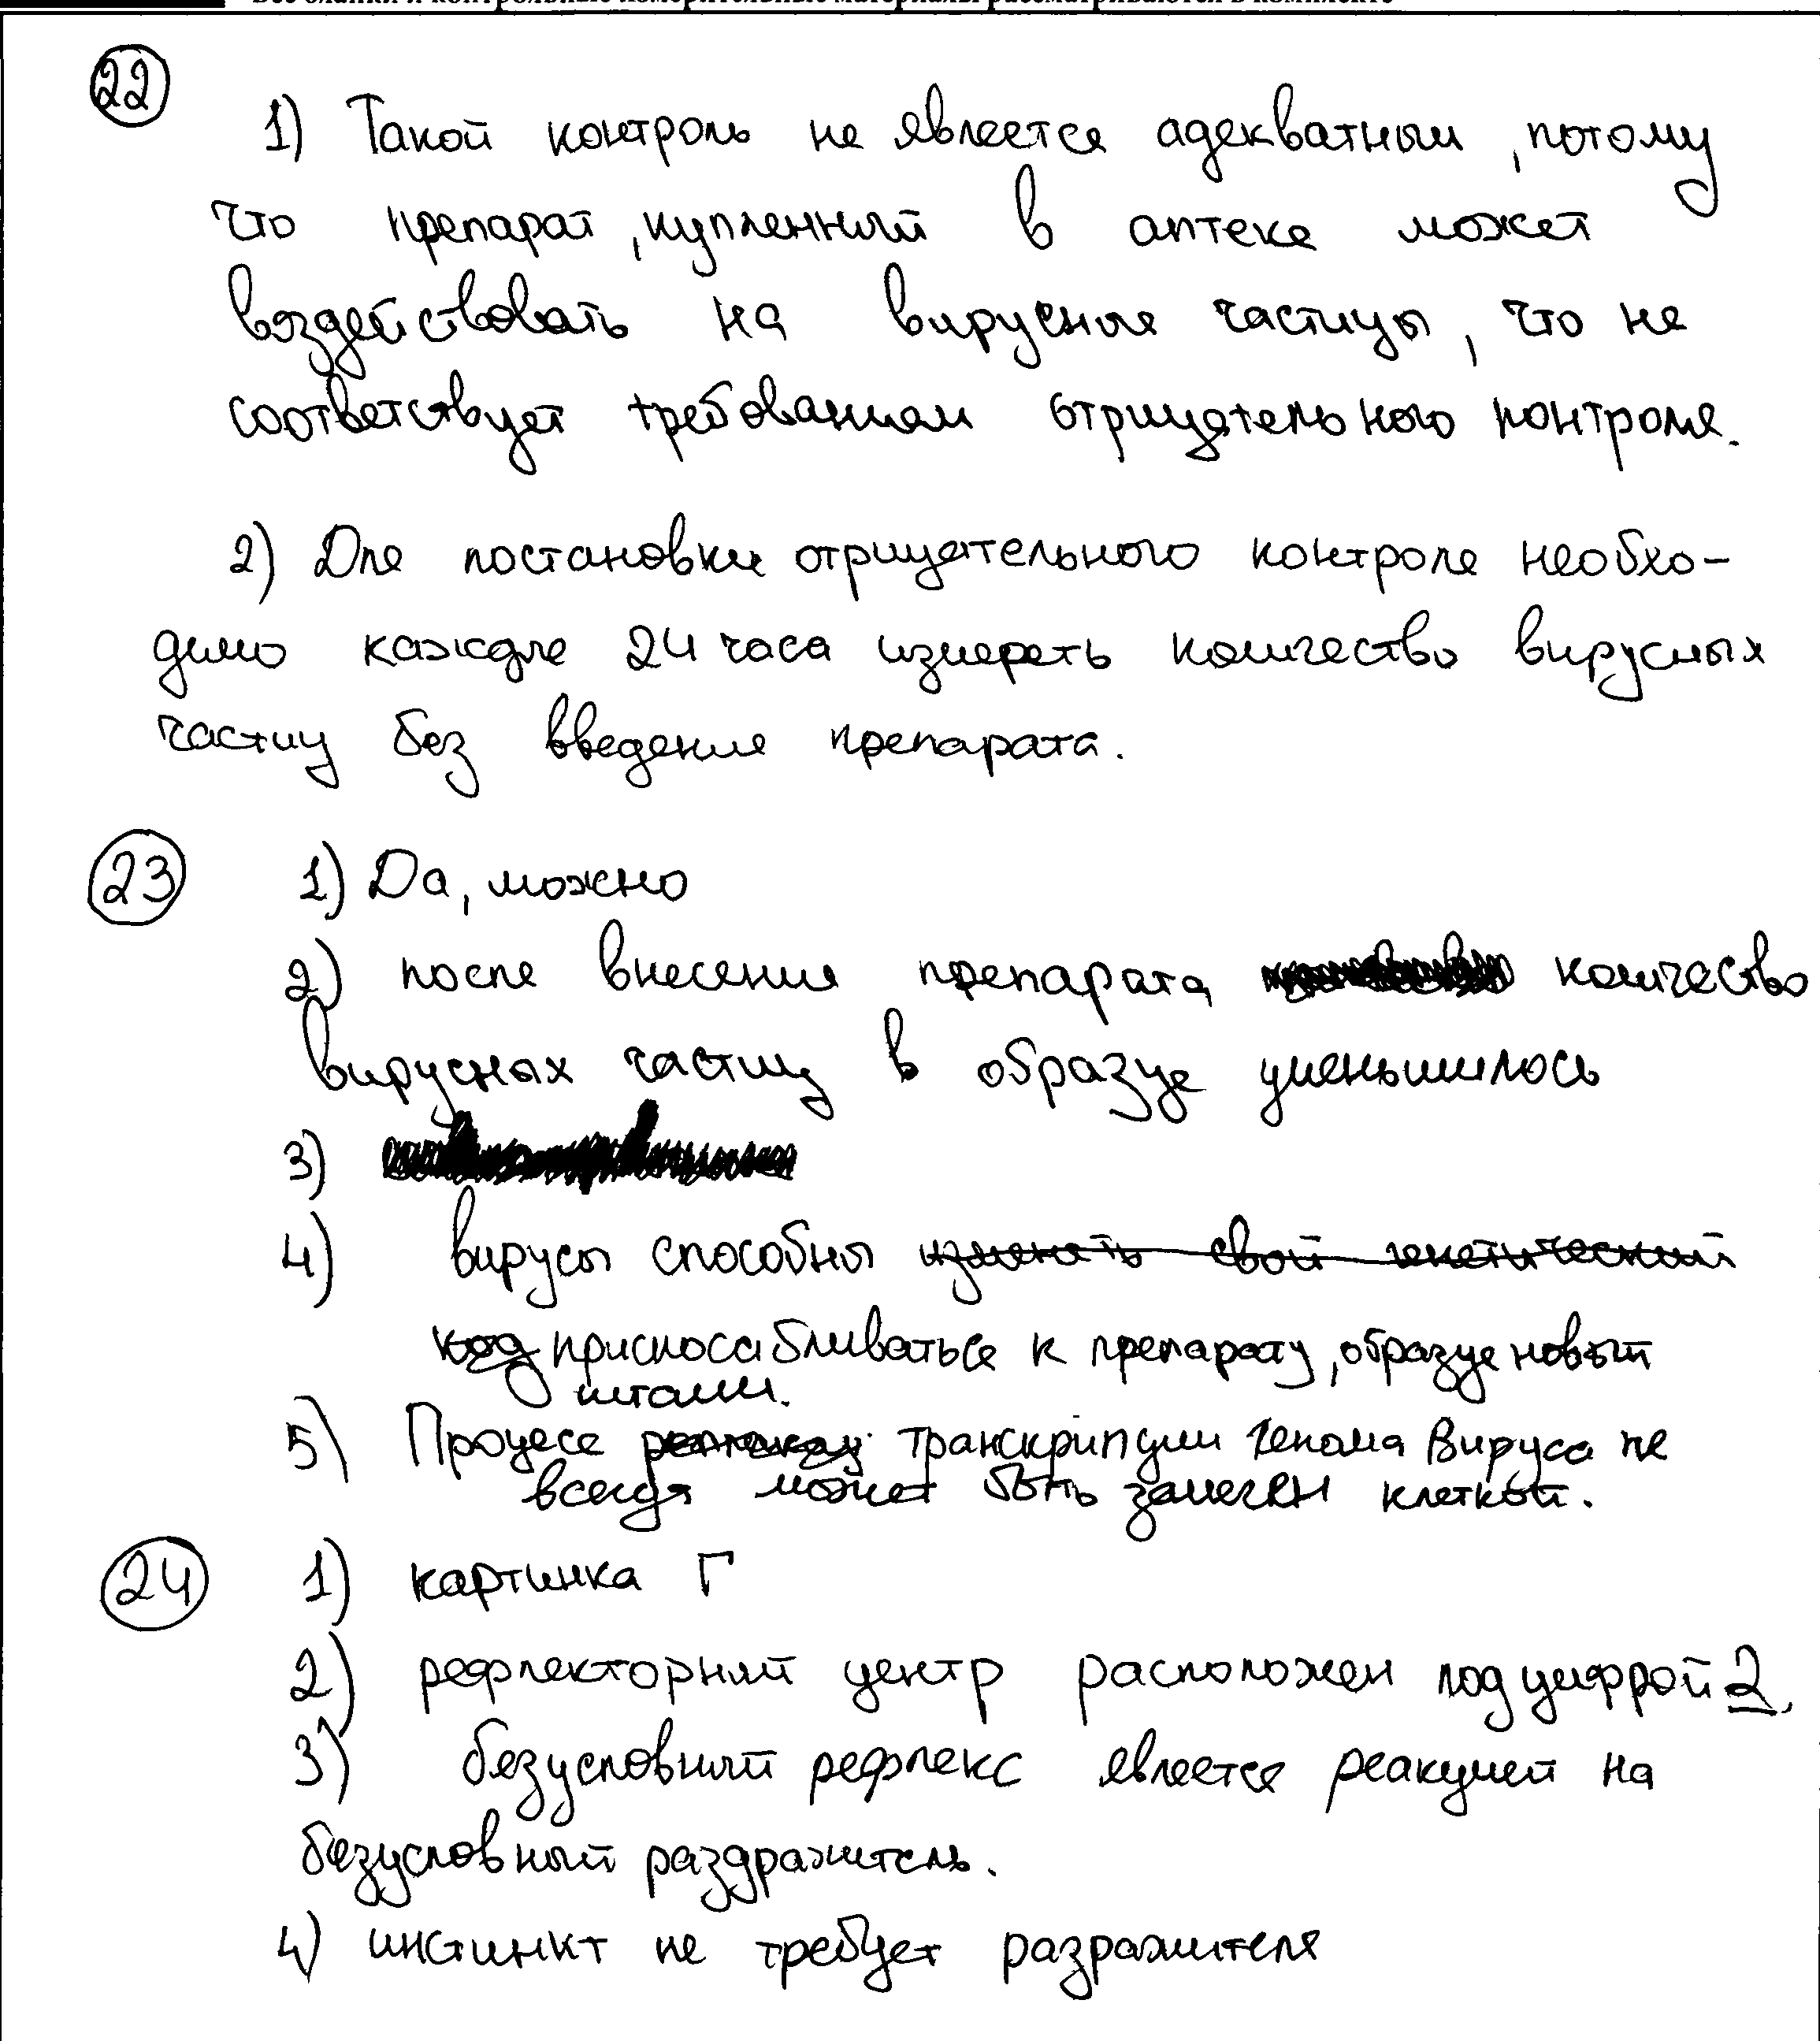 Все бланки и контрольные измерительные материалы рассматриваются в комплекте
22
1) Такой контроль не является адекватным, потому
что препарат, купленный в аптеке может
воздействовать на вирусные частицы, что не
соответствует требованиям отрицательного контроля.
2) Для постановки отрицательного контроля необхо-
димо каждые 24 часа измерять количество вирусных
частиц без введения препарата.
23 1) Да, можно
2) после внесения препарата количество
вирусных частиц в образце уменьшилось
3)
4) вирусы способны изменять свой генетический
код приспосабливаться к препарату, образуя новый
штамм.
5) Процесс транскрипции генома вируса не
всегда может быть замечен клеткой.
24 1) картинка Г
2) рефлекторный центр расположен под цифрой 2.
3) безусловный рефлекс является реакцией на
безусловный раздражитель.
4) инстинкт не требует разражителя